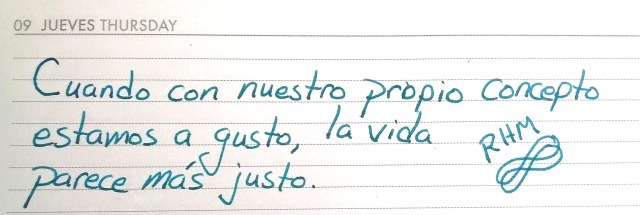 09 JUEVES THURSDAY
Cuando con nuestro propio concepto
estamos a gusto, la vida
parece más justo.
RHM